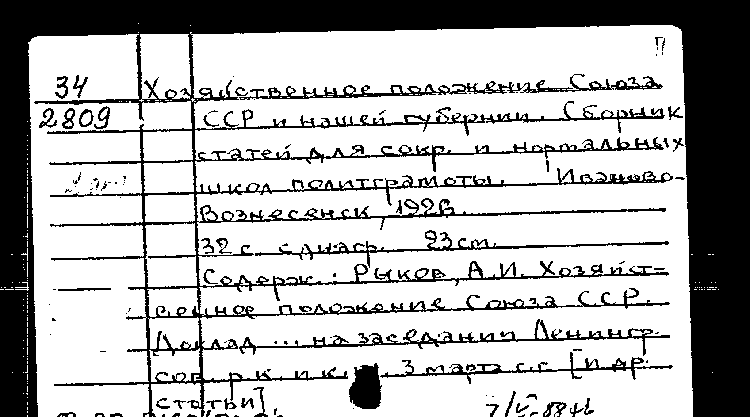 П
34 Хозяйственное положение Союза
2809 ССР и нашей губернии. Сборник
статей для сокр. и нормальных
2 экз. школ политграмоты. Иваново-
Вознесенск, 1926.
32 с. с диагр. 23 см.
Содерж.: Рыков, А.И. Хозяйст-
венное положение Союза ССР.
Доклад ... на заседании Ленингр.
сов. р. к. и к. 3 марта с.г. [и др.
статьи]